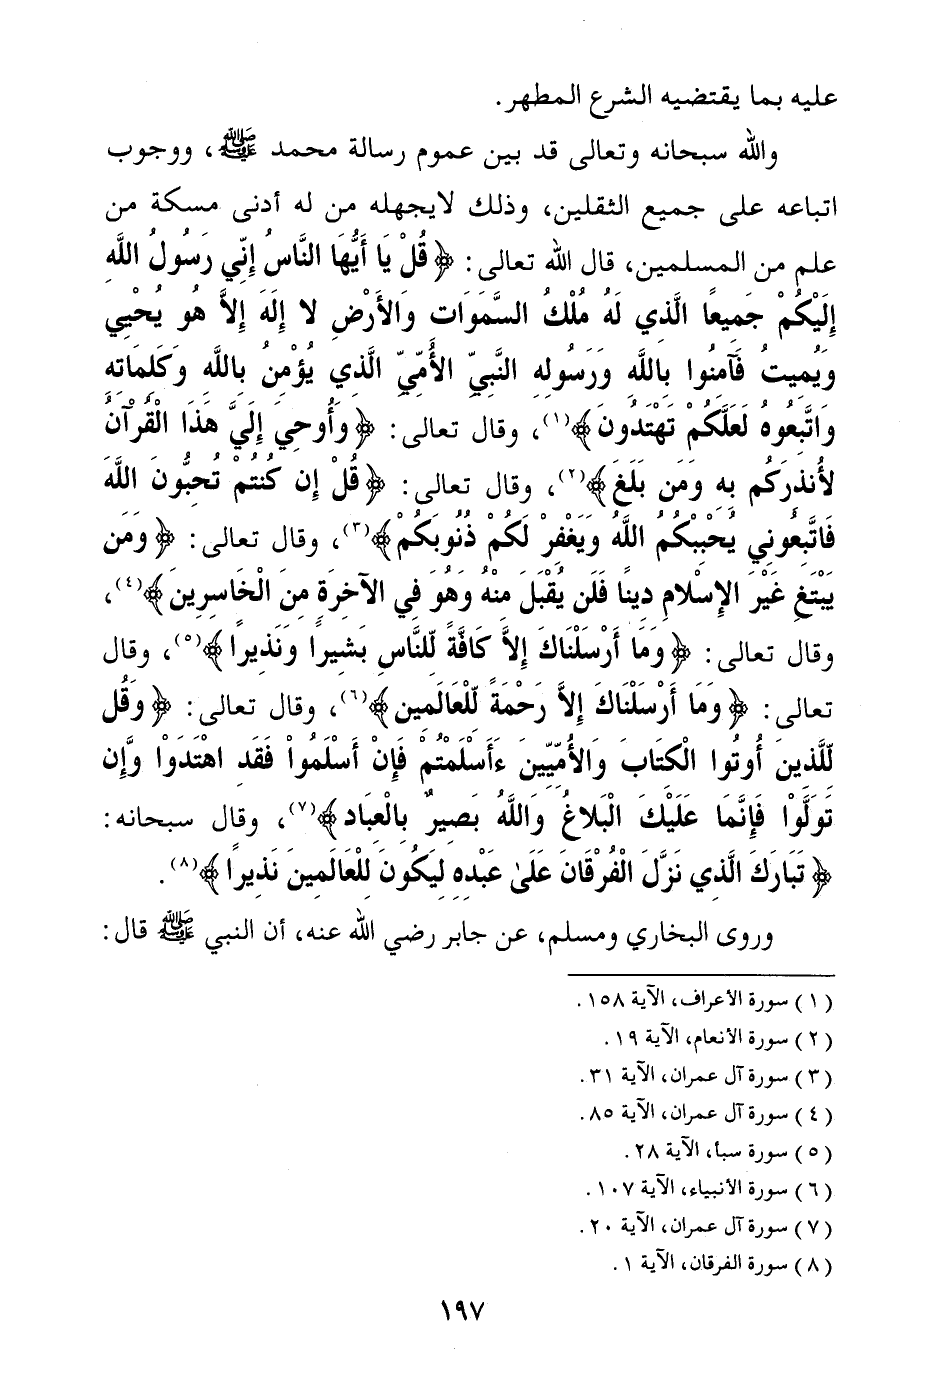 عليه بما يقتضيه الشرع المطهر.
والله سبحانه وتعالى قد بين عموم رسالة محمد ﷺ، ووجوب
اتباعه على جميع الثقلين، وذلك لايجهله من له أدنى مسكة من
علم من المسلمين، قال الله تعالى: ﴿قُلْ يَا أَيُّهَا النَّاسُ إِنِّي رَسُولُ اللَّهِ
إِلَيْكُمْ جَمِيعًا الَّذِي لَهُ مُلْكُ السَّمَوَاتِ وَالأَرْضِ لا إِلَهَ إِلاَّ هُوَ يُحْيِي
وَيُمِيتُ فَآمِنُوا بِاللَّهِ وَرَسُولِهِ النَّبِيِّ الأُمِّيِّ الَّذِي يُؤْمِنُ بِاللَّهِ وَكَلِمَاتِهِ
وَاتَّبِعُوهُ لَعَلَّكُمْ تَهْتَدُونَ﴾(١)، وقال تعالى: ﴿وَأُوحِيَ إِلَيَّ هَذَا الْقُرْآنُ
لأُنذِرَكُم بِهِ وَمَن بَلَغَ﴾(٢)، وقال تعالى: ﴿قُلْ إِن كُنتُمْ تُحِبُّونَ اللَّهَ
فَاتَّبِعُونِي يُحْبِبْكُمُ اللَّهُ وَيَغْفِرْ لَكُمْ ذُنُوبَكُمْ﴾(٣)، وقال تعالى: ﴿وَمَن
يَبْتَغِ غَيْرَ الإِسْلامِ دِينًا فَلَن يُقْبَلَ مِنْهُ وَهُوَ فِي الآخِرَةِ مِنَ الْخَاسِرِينَ﴾(٤)،
وقال تعالى: ﴿وَمَا أَرْسَلْنَاكَ إِلاَّ كَافَّةً لِّلنَّاسِ بَشِيرًا وَنَذِيرًا﴾(٥)، وقال
تعالى: ﴿وَمَا أَرْسَلْنَاكَ إِلاَّ رَحْمَةً لِّلْعَالَمِينَ﴾(٦)، وقال تعالى: ﴿وَقُل
لِّلَّذِينَ أُوتُوا الْكِتَابَ وَالأُمِّيِّينَ ءَأَسْلَمْتُمْ فَإِنْ أَسْلَمُواْ فَقَدِ اهْتَدَواْ وَّإِن
تَوَلَّوْا فَإِنَّمَا عَلَيْكَ الْبَلاغُ وَاللَّهُ بَصِيرٌ بِالْعِبَادِ﴾(٧)، وقال سبحانه:
﴿تَبَارَكَ الَّذِي نَزَّلَ الْفُرْقَانَ عَلَى عَبْدِهِ لِيَكُونَ لِلْعَالَمِينَ نَذِيرًا﴾(٨).
وروى البخاري ومسلم، عن جابر رضي الله عنه، أن النبي ﷺ قال:
(١) سورة الأعراف، الآية ١٥٨.
(٢) سورة الأنعام، الآية ١٩.
(٣) سورة آل عمران، الآية ٣١.
(٤) سورة آل عمران، الآية ٨٥.
(٥) سورة سبأ، الآية ٢٨.
(٦) سورة الأنبياء، الآية ١٠٧.
(٧) سورة آل عمران، الآية ٢٠.
(٨) سورة الفرقان، الآية ١.
١٩٧